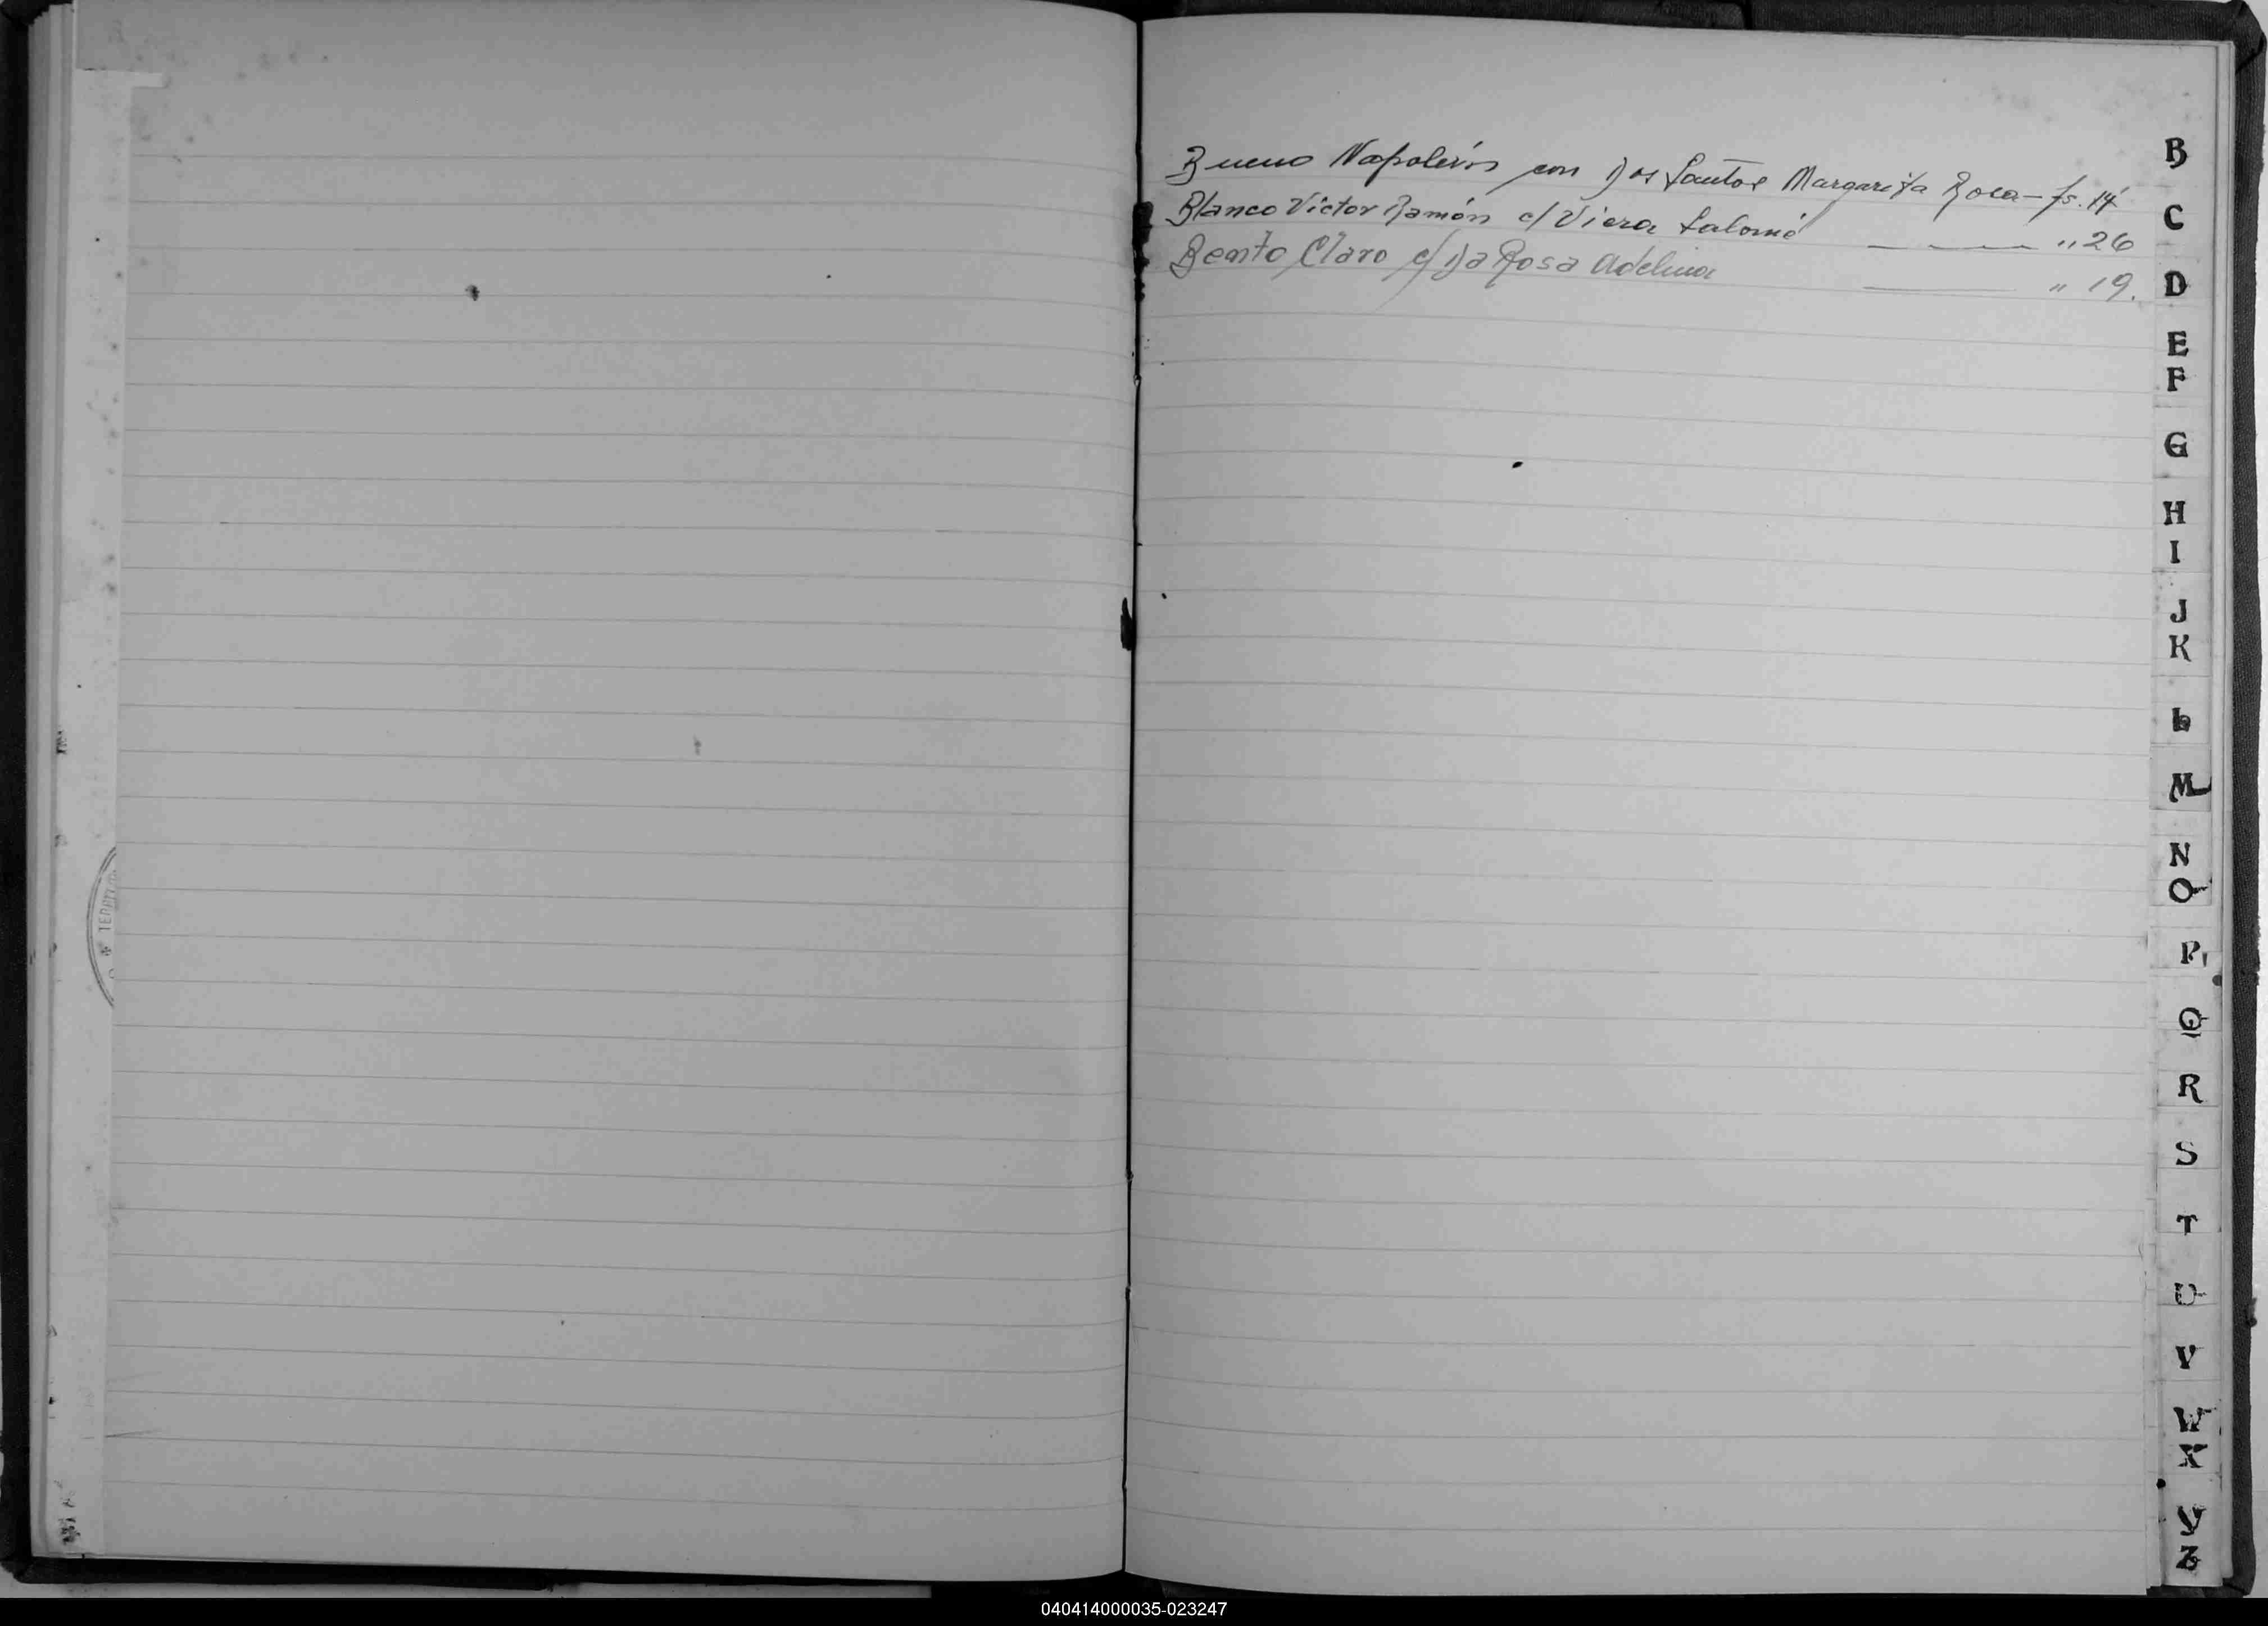 Bueno Napoleón con Dos Santos Margarita Rosa — fs. 14
Blanco Victor Ramón c/ Viera Salomé — „ 26
Bento Claro c/ Da Rosa Adelina — „ 19.
B
C
D
E
F
G
H
I
J
K
L
M
N
O
P
Q
R
S
T
U
V
W
X
Y
Z
040414000035-023247